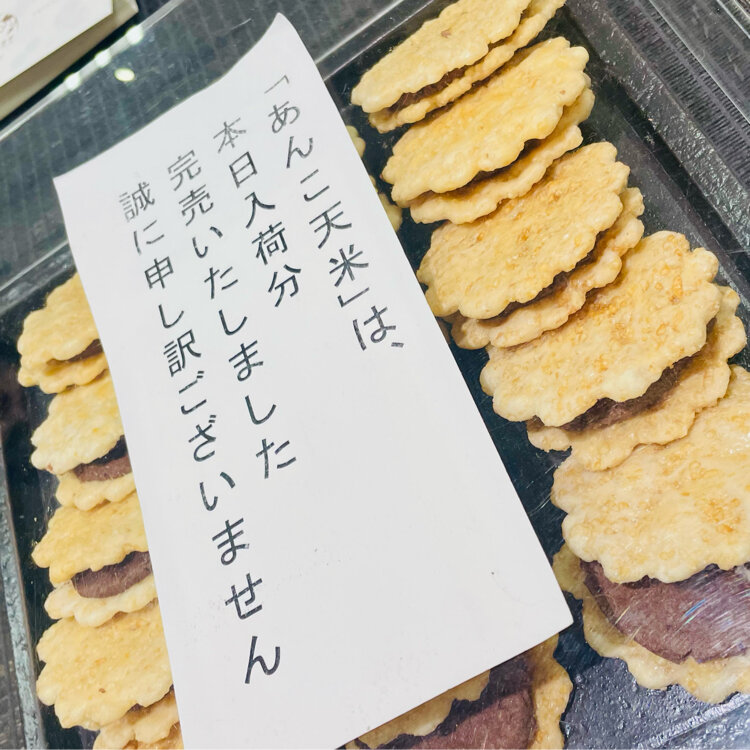 「あんこ天米」は、
本日入荷分
完売いたしました
誠に申し訳ございません